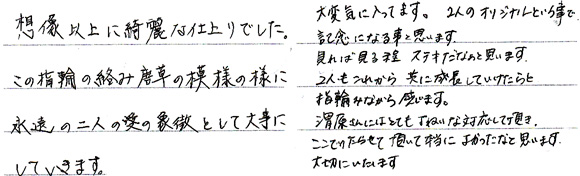 想像以上に綺麗な仕上りでした。
この指輪の絡み唐草の模様の様に
永遠の二人の愛の象徴として大事に
していきます。
大変気に入ってます。2人のオリジナルという事で
記念になる事と思います
見れば見る程ステキだなぁと思います。
2人もこれから共に成長していけたらと
指輪みながら感じます。
渭原さんにはとてもていねいな対応して頂き、
ここでつくらせて頂いて本当によかったなと思います。
大切にいたします